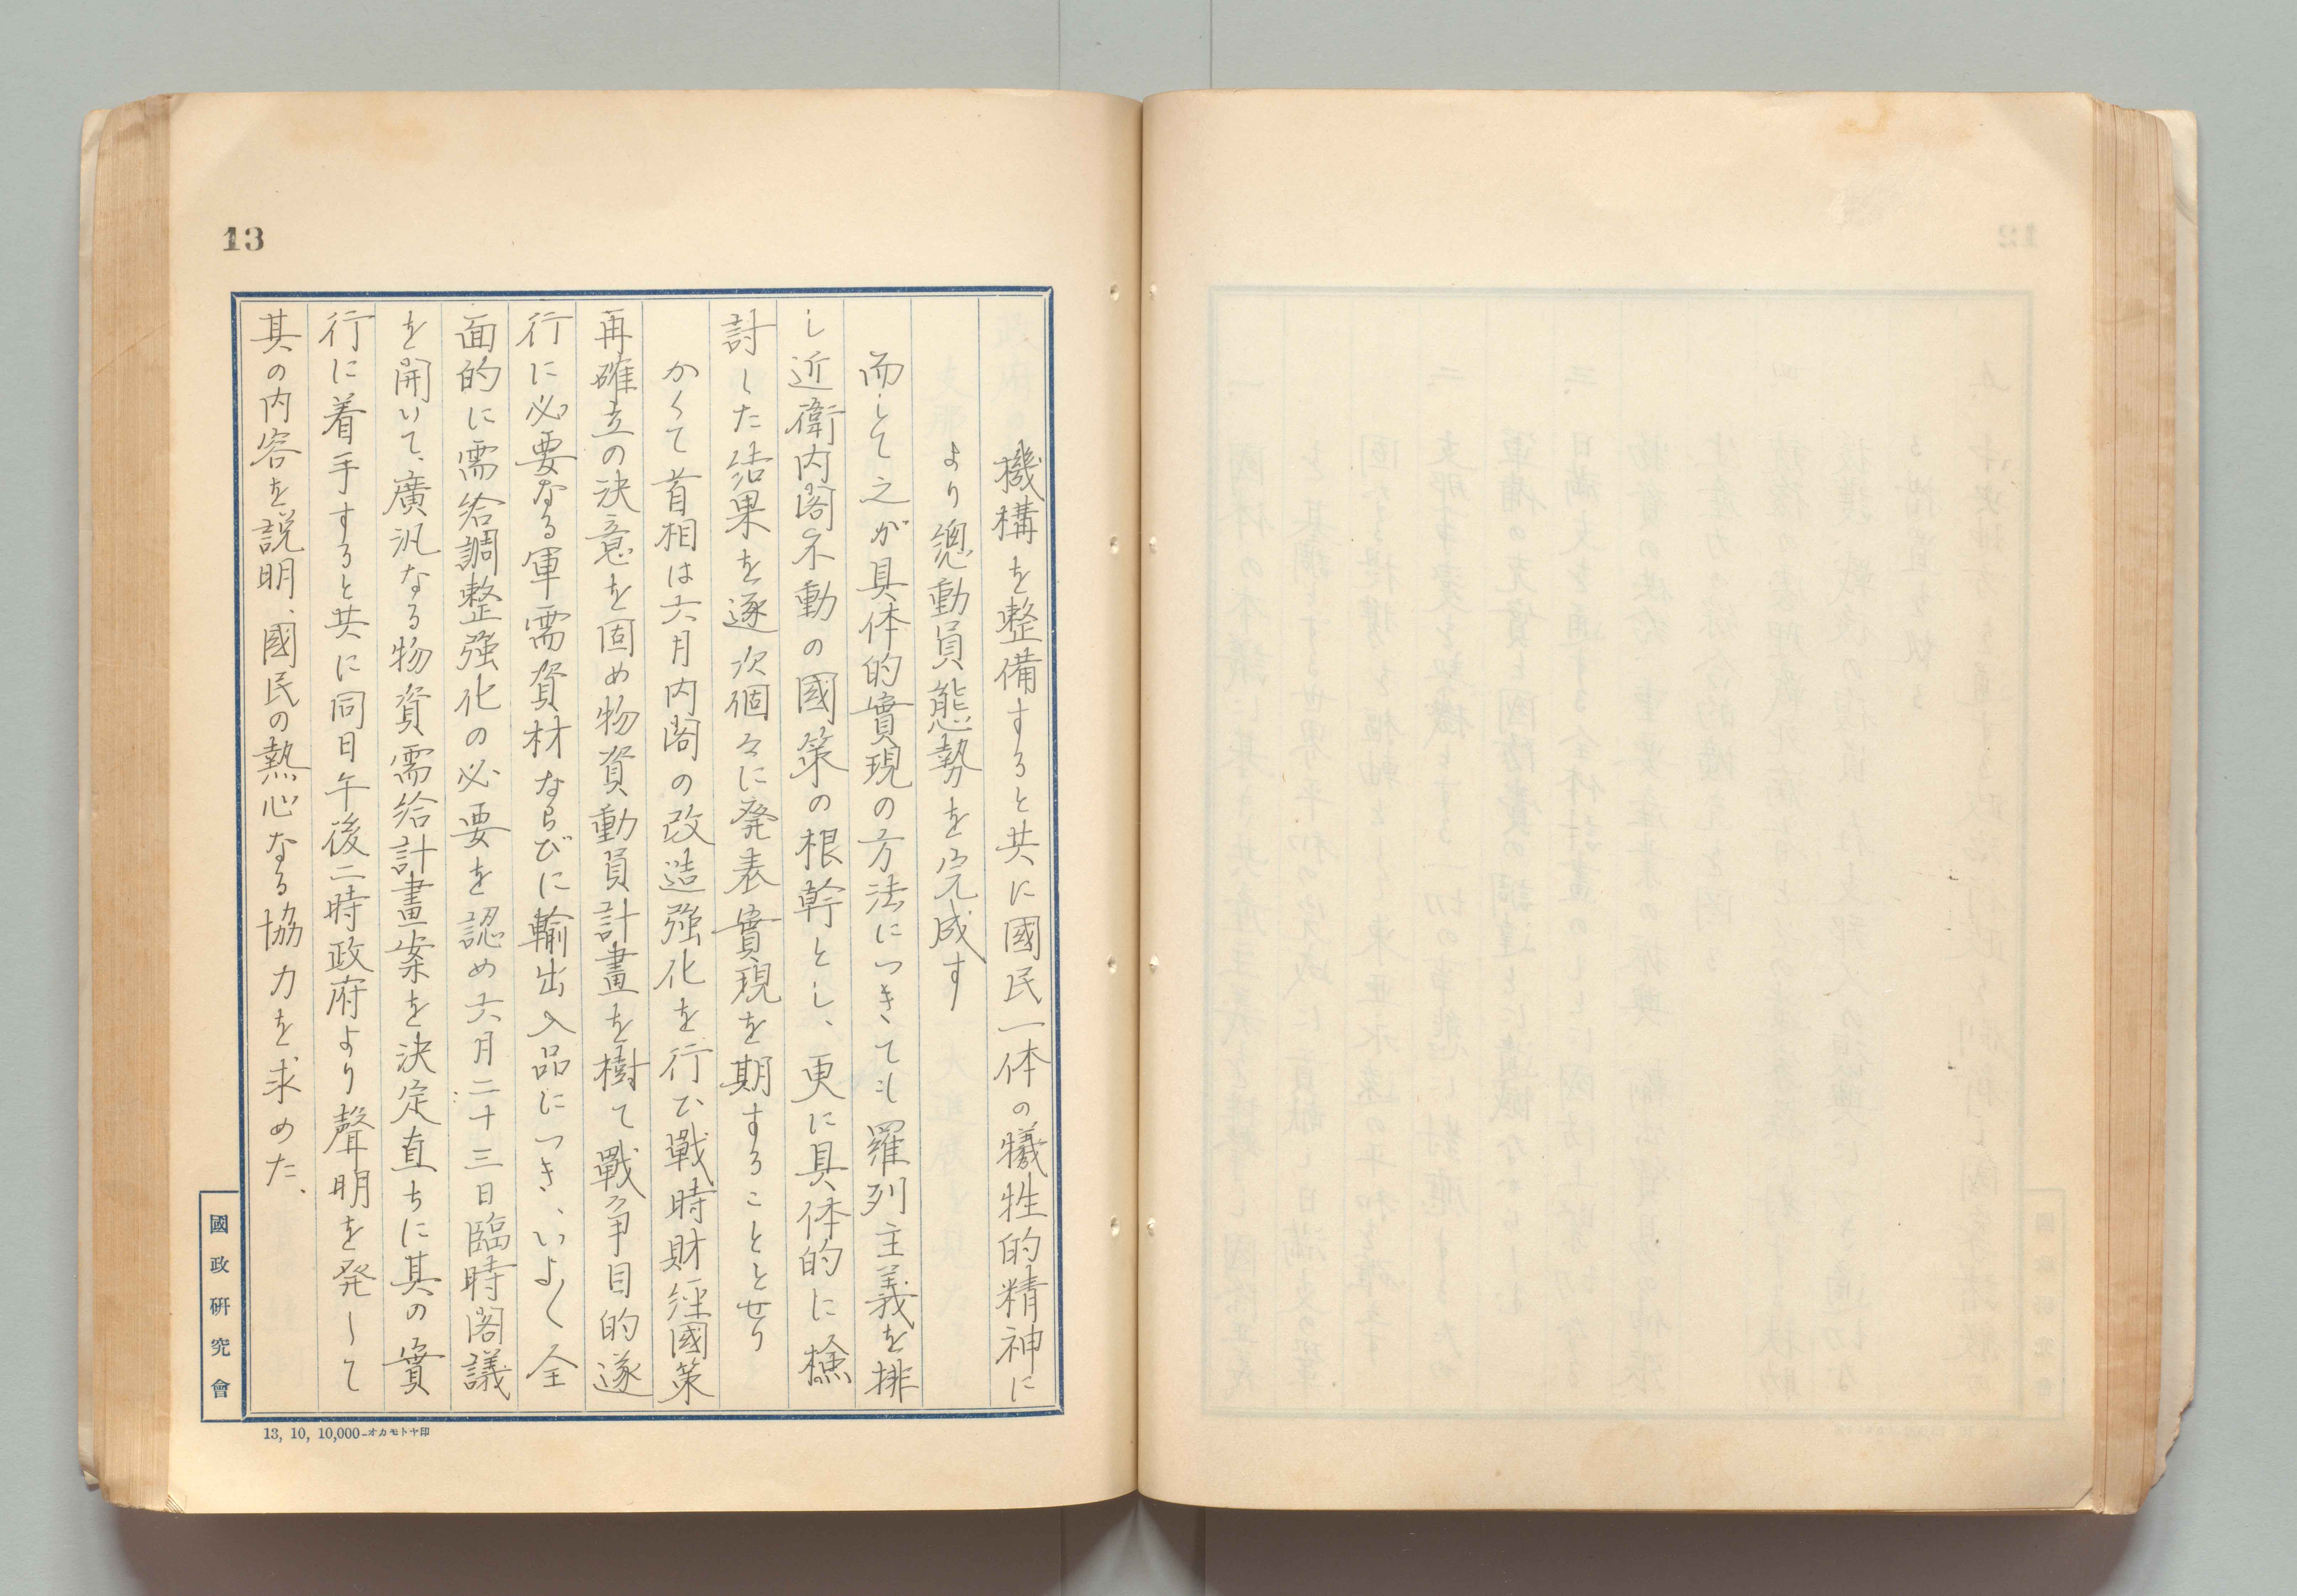 13
機構を整備すると共に國民一体の犠牲的精神に
より總動員態勢を完成す
而して之が具体的實現の方法につきても羅列主義を排
し近衛内閣不動の國策の根幹とし、更に具体的に檢
討した結果を逐次個々に発表實現を期することとせり
かくて首相は六月内閣の改造強化を行ひ戰時財経國策
再確立の決意を固め物資動員計畫を樹て戰争目的遂
行に必要なる軍需資材ならびに輸出入品につき、いよ〱全
面的に需給調整強化の必要を認め六月二十三日臨時閣議
を開いて、廣汎なる物資需給計畫案を決定直ちに其の實
行に着手すると共に同日午後二時政府より聲明を発して
其の内容を説明、國民の熱心なる協力を求めた、
國政研究會
13, 10, 10,000-オカモトヤ印